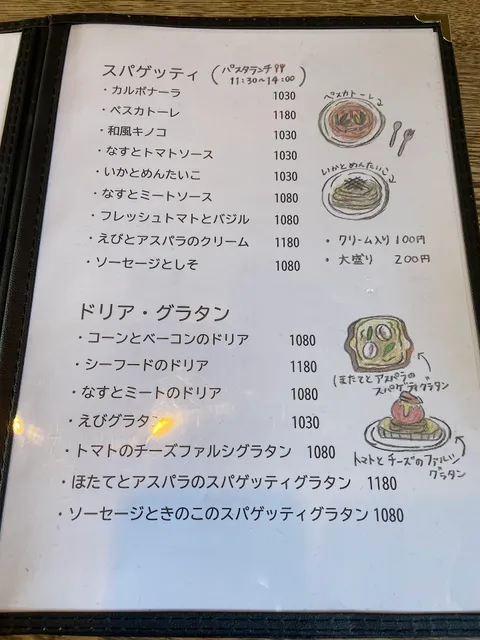 スパゲッティ (パスタランチ 11:30~14:00)
・カルボナーラ 1030
・ペスカトーレ 1180
・和風キノコ 1030
・なすとトマトソース 1030
・いかとめんたいこ 1030
・なすとミートソース 1080
・フレッシュトマトとバジル 1080
・えびとアスパラのクリーム 1180
・ソーセージとしそ 1080
ペスカトーレ
いかとめんたいこ
・クリーム入り 100円
・大盛り 200円
ドリア・グラタン
・コーンとベーコンのドリア 1080
・シーフードのドリア 1180
・なすとミートのドリア 1080
・えびグラタン 1030
・トマトのチーズファルシグラタン 1080
・ほたてとアスパラのスパゲッティグラタン 1180
・ソーセージときのこのスパゲッティグラタン 1080
ほたてとアスパラの
スパゲッティグラタン
トマトとチーズのファルシ
グラタン